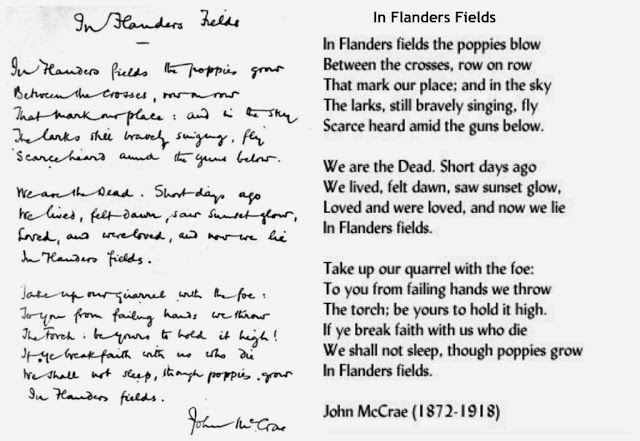 In Flanders Fields
In Flanders fields the poppies grow
Between the crosses, row on row
That mark our place : and in the sky
The larks still bravely singing, fly
Scarce heard amid the guns below.
We are the Dead. Short days ago
We lived, felt dawn, saw sunset glow,
Loved, and were loved, and now we lie
In Flanders fields.
Take up our quarrel with the foe :
To you from failing hands we throw
The Torch : be yours to hold it high!
If ye break faith with us who die
We shall not sleep, though poppies grow
In Flanders fields.
John McCrae
In Flanders Fields
In Flanders fields the poppies blow
Between the crosses, row on row
That mark our place; and in the sky
The larks, still bravely singing, fly
Scarce heard amid the guns below.
We are the Dead. Short days ago
We lived, felt dawn, saw sunset glow,
Loved and were loved, and now we lie
In Flanders fields.
Take up our quarrel with the foe:
To you from failing hands we throw
The torch; be yours to hold it high.
If ye break faith with us who die
We shall not sleep, though poppies grow
In Flanders fields.
John McCrae (1872-1918)